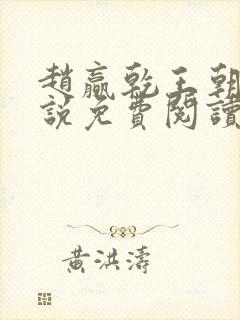 趙贏乾王朝
說免費閱讀
黃洪濤